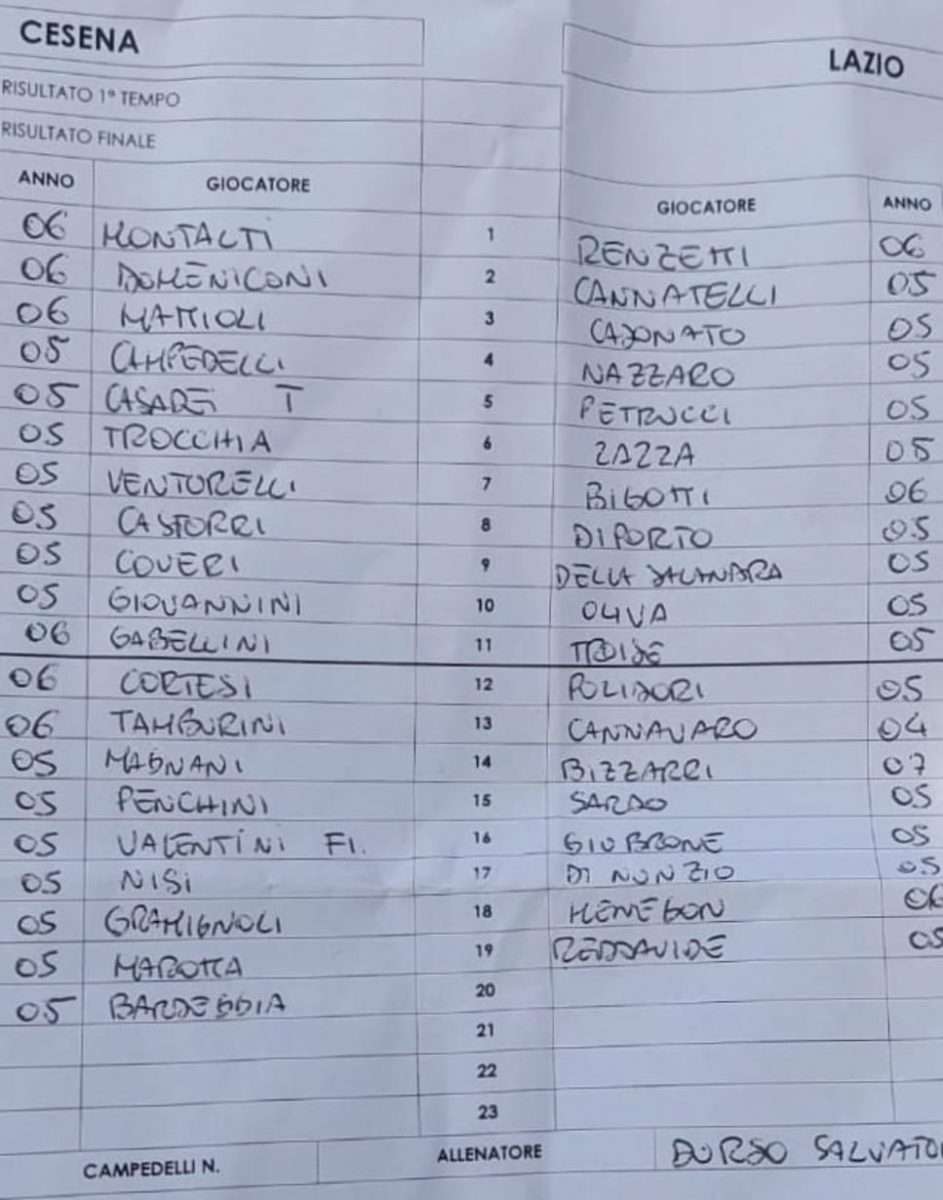 CESENA LAZIO
RISULTATO 1° TEMPO
RISULTATO FINALE
ANNO GIOCATORE GIOCATORE ANNO
06 MONTALTI 1 RENZETTI 06
06 DOMENICONI 2 CANNATELLI 05
06 MATTIOLI 3 CADONATO 05
05 CAMPEDELLI 4 NAZZARO 05
05 CASADEI T 5 PETRUCCI 05
05 TROCCHIA 6 ZAZZA 05
05 VENTORELLI 7 BIGOTTI 06
05 CASTORRI 8 DIPORTO 05
05 COVERI 9 DELLA 05
05 GIOVANNINI 10 OLIVA 05
06 GABELLINI 11 TROISE 05
06 CORTESI 12 POLIDORI 05
06 TAMBURINI 13 CANNAVARO 04
05 MAGNANI 14 BIZZARRI 07
05 PENCHINI 15 SARDO 05
05 VALENTINI FI. 16 GIUBRONE 05
05 NISI 17 DI NUNZIO 05
05 GRAMIGNOLI 18 06
05 MAROTTA 19 REDDAVIDE 05
05 BARDEGGIA 20
21
22
23
CAMPEDELLI N. ALLENATORE DURSO SALVATO